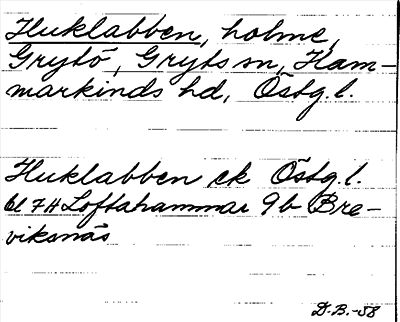 Huklabben, holme,
Grytö, Gryts sn, Ham-
markinds hd, Östg.l.
Huklabben ek Östg.l.
bl 7H Loftahammar 9b Bre-
viksnäs
D.B.-58